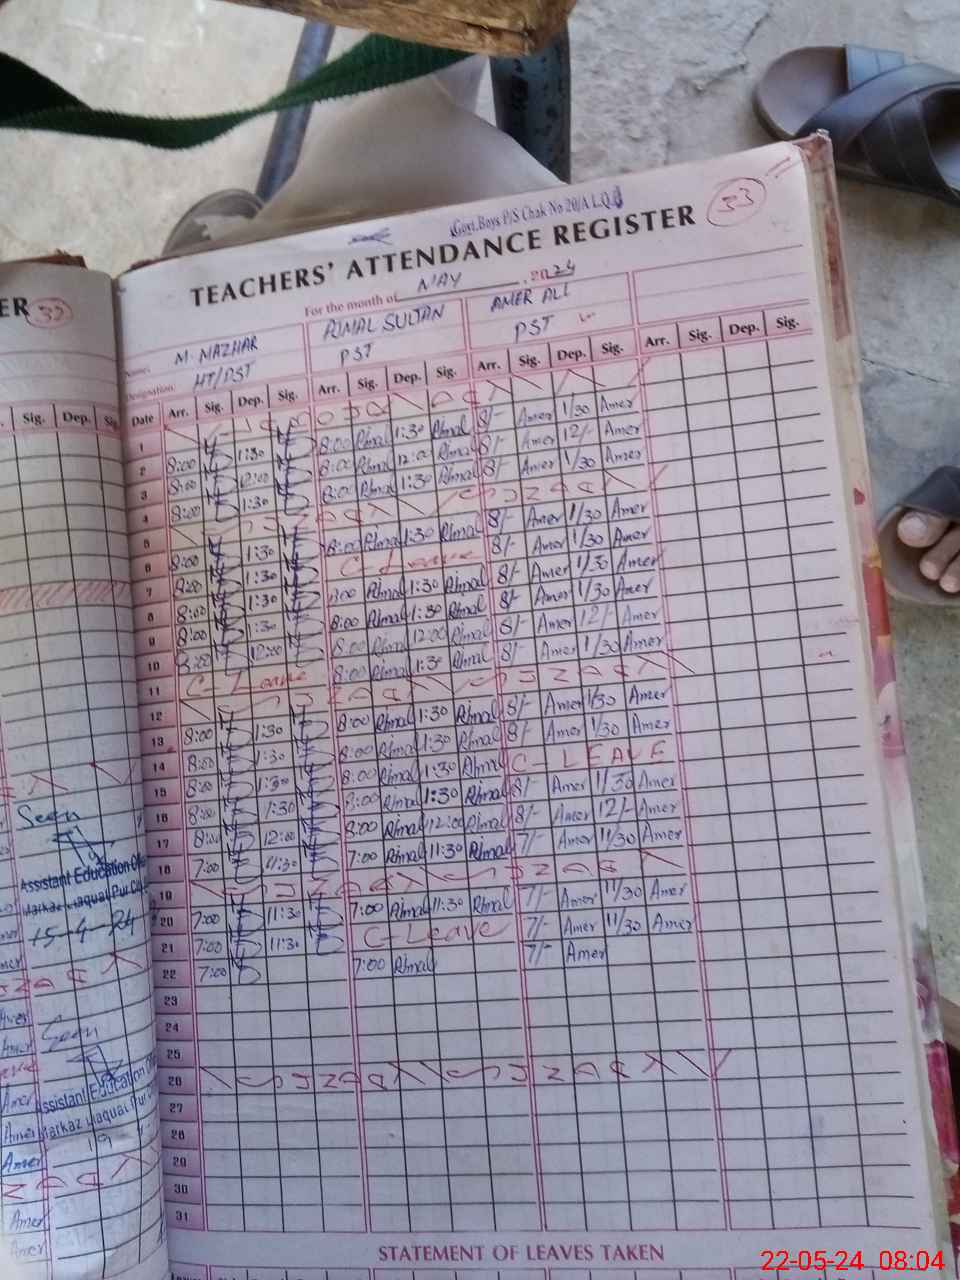 Govt.Boys P/S Chak No 20/A L.Q.P
33
TEACHERS' ATTENDANCE REGISTER
For the month of MAY 2024
Name: M. MAZHAR AJMAL SULTAN AMER ALI
Designation: HT/PST PST PST
Date Arr. Sig. Dep. Sig. Arr. Sig. Dep. Sig. Arr. Sig. Dep. Sig. Arr. Sig. Dep. Sig.
1
2 8:00 1:30 8:00 Ajmal 1:30 Ajmal 8/- Amer 1/30 Amer
3 8:00 12:00 8:00 Ajmal 12:00 Ajmal 8/- Amer 12/- Amer
4 8:00 1:30 8:00 Ajmal 1:30 Ajmal 8/- Amer 1/30 Amer
5 SUNDAY SUNDAY
6 8:00 1:30 8:00 Ajmal 1:30 Ajmal 8/- Amer 1/30 Amer
7 8:00 1:30 C-Leave 8/- Amer 1/30 Amer
8 8:00 1:30 8:00 Ajmal 1:30 Ajmal 8/- Amer 1/30 Amer
9 8:00 1:30 8:00 Ajmal 1:30 Ajmal 8/- Amer 1/30 Amer
10 8:00 12:00 8:00 Ajmal 12:00 Ajmal 8/- Amer 12/- Amer
11 C-Leave 8:00 Ajmal 1:30 Ajmal 8/- Amer 1/30 Amer
12 SUNDAY SUNDAY
13 8:00 1:30 8:00 Ajmal 1:30 Ajmal 8/- Amer 1/30 Amer
14 8:00 1:30 8:00 Ajmal 1:30 Ajmal 8/- Amer 1/30 Amer
15 8:00 1:30 8:00 Ajmal 1:30 Ajmal C-LEAVE
16 8:00 1:30 8:00 Ajmal 1:30 Ajmal 8/- Amer 1/30 Amer
17 8:00 12:00 8:00 Ajmal 12:00 Ajmal 8/- Amer 12/- Amer
18 7:00 11:30 7:00 Ajmal 11:30 Ajmal 7/- Amer 11/30 Amer
19 SUNDAY SUNDAY
20 7:00 11:30 7:00 Ajmal 11:30 Ajmal 7/- Amer 11/30 Amer
21 7:00 11:30 C-Leave 7/- Amer 11/30 Amer
22 7:00 7:00 Ajmal 7/- Amer
23
24
25
26 SUNDAY SUNDAY
27
28
29
30
31
STATEMENT OF LEAVES TAKEN
ER 32
Sig. Dep. Sig.
Seen
Assistant Education
Markaz Liaquat Pur
15-4-24
Seen
Assistant Education
Markaz Liaquat Pur
Amer
Amer
Amer
Amer
Amer
22-05-24 08:04